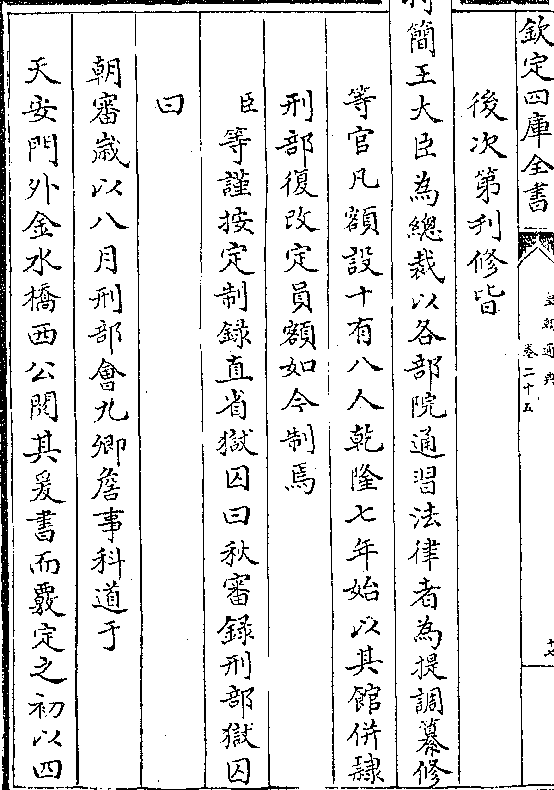 欽定四庫全書
皇朝通典
卷二十五
後次第刊修皆
特簡王大臣為總裁以各部院通習法律者為提調纂修
等官凡額設十有八人乾隆七年始以其館併隸
刑部復改定員額如今制焉
臣等謹按定制録直省獄囚曰秋審録刑部獄囚
曰
朝審嵗以八月刑部會九卿詹事科道于
天安門外金水橋西公閱其爰書而覈定之初以四